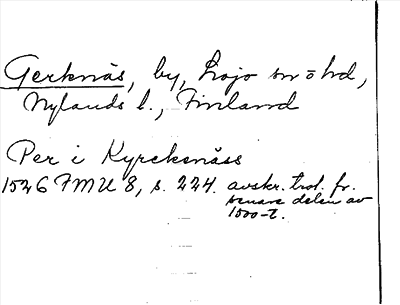 Gerknäs, by, Lojo sn o hd,
Nylands l., Finland
Per i Kyrcksnäss
1526 FMU 8, s. 224. avskr. trol. fr.
senare delen av
1500-t.